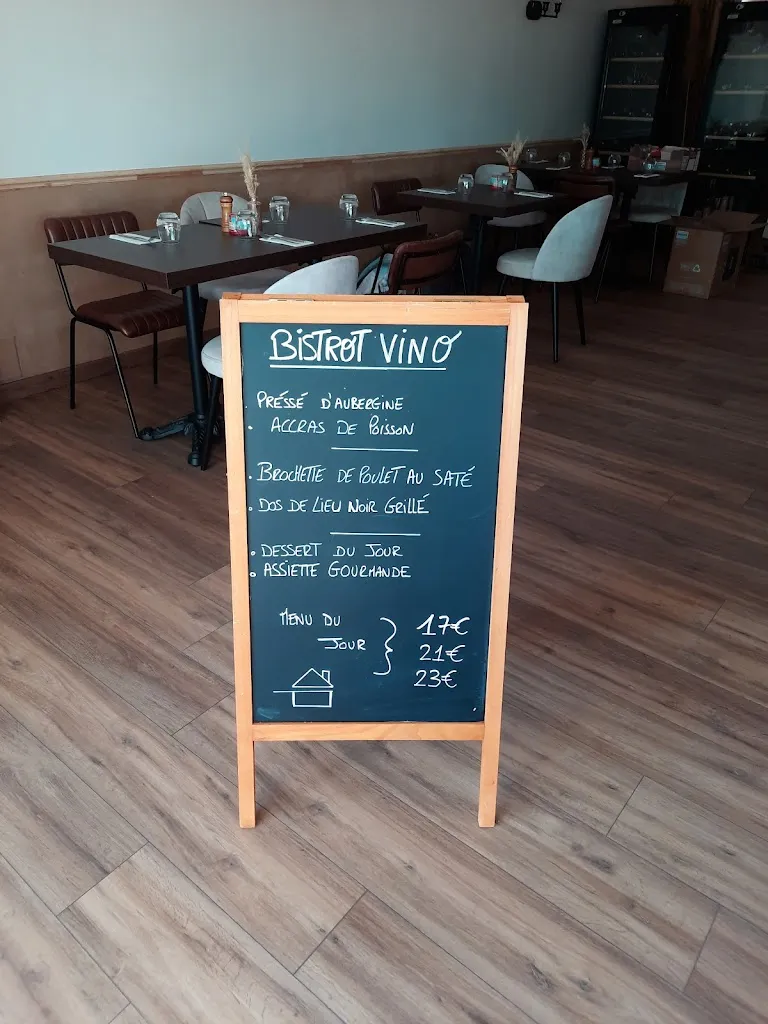 BISTROT VINO
PRÉSSÉ D'AUBERGINE
. ACCRAS DE POISSON
. BROCHETTE DE POULET AU SATÉ
. DOS DE LIEU NOIR GRILLÉ
. DESSERT DU JOUR
. ASSIETTE GOURMANDE
MENU DU JOUR } 17€
21€
23€